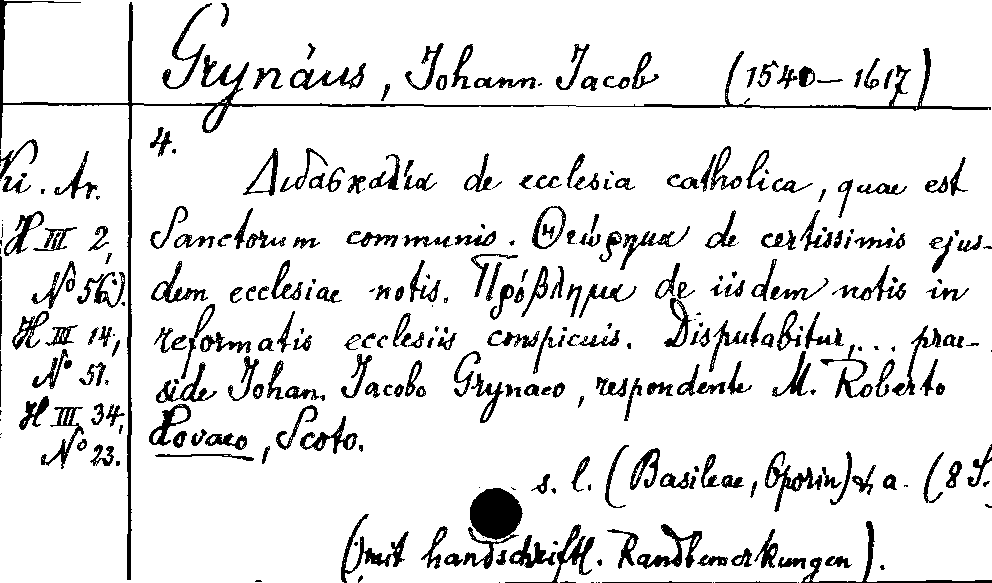 Grynäus, Johann Jacob (1540–1617)
4.
Διδασκαλία de ecclesia catholica, quae est
Sanctorum communio. Θεώρημα de certissimis ejus-
dem ecclesiae notis. Πρόβλημα de iisdem notis in
reformatis ecclesiis conspicuis. Disputabitur,... prae-
side Johan. Jacobo Grynaeo, respondente M. Roberto
Hovaeo, Scoto.
s. l. (Basileae, Oporin) & a. (8 S.)
(mit handschriftl. Randbemerkungen).
Ki. Ar.
H III 2,
No 56a).
H III 14,
No 51.
H III 34,
No 23.